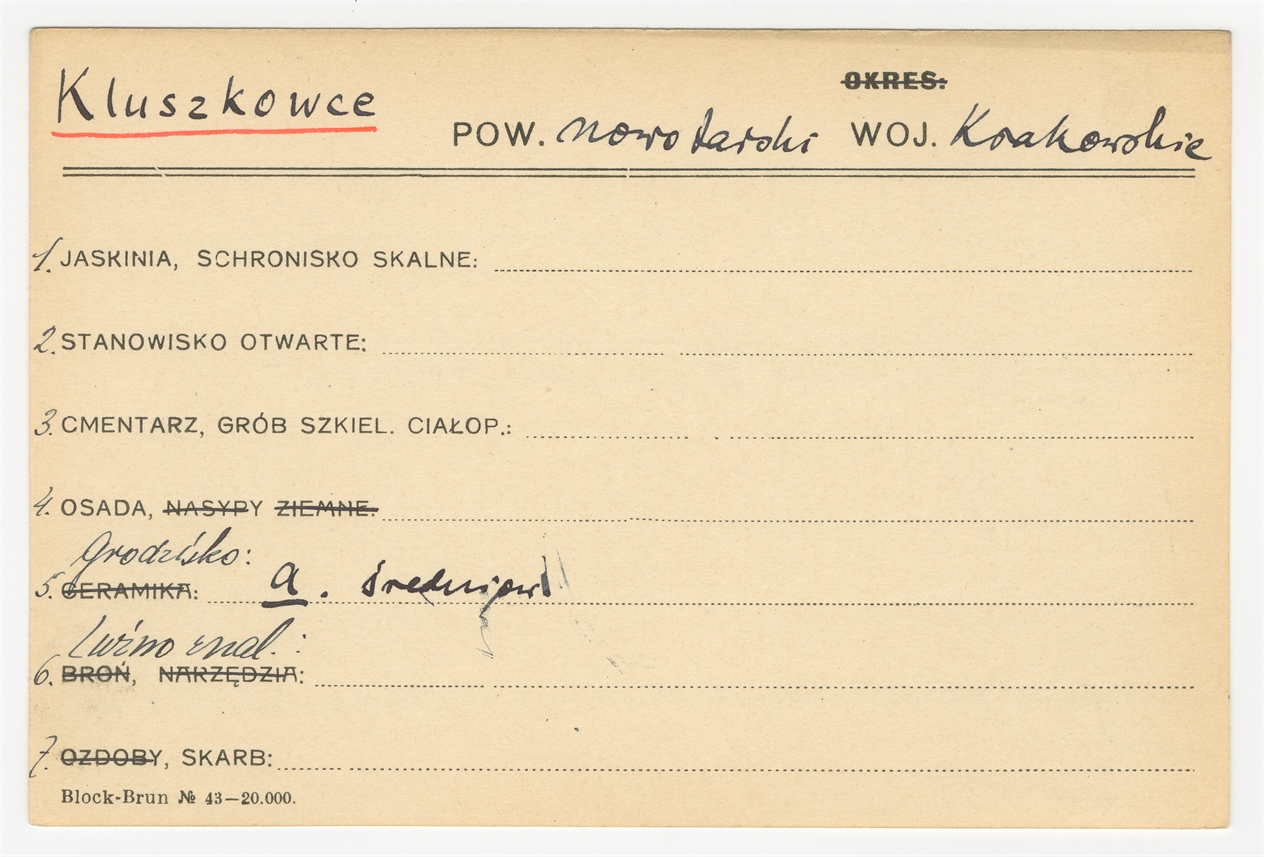 Kluszkowce
OKRES:
POW. nowotarski WOJ. Krakowskie
1. JASKINIA, SCHRONISKO SKALNE:
2. STANOWISKO OTWARTE:
3. CMENTARZ, GRÓB SZKIEL. CIAŁOP.:
4. OSADA, NASYPY ZIEMNE.
Grodzisko:
5. CERAMIKA: a. średniow.
Luźno znal.:
6. BROŃ, NARZĘDZIA:
7. OZDOBY, SKARB:
Block-Brun № 43—20.000.